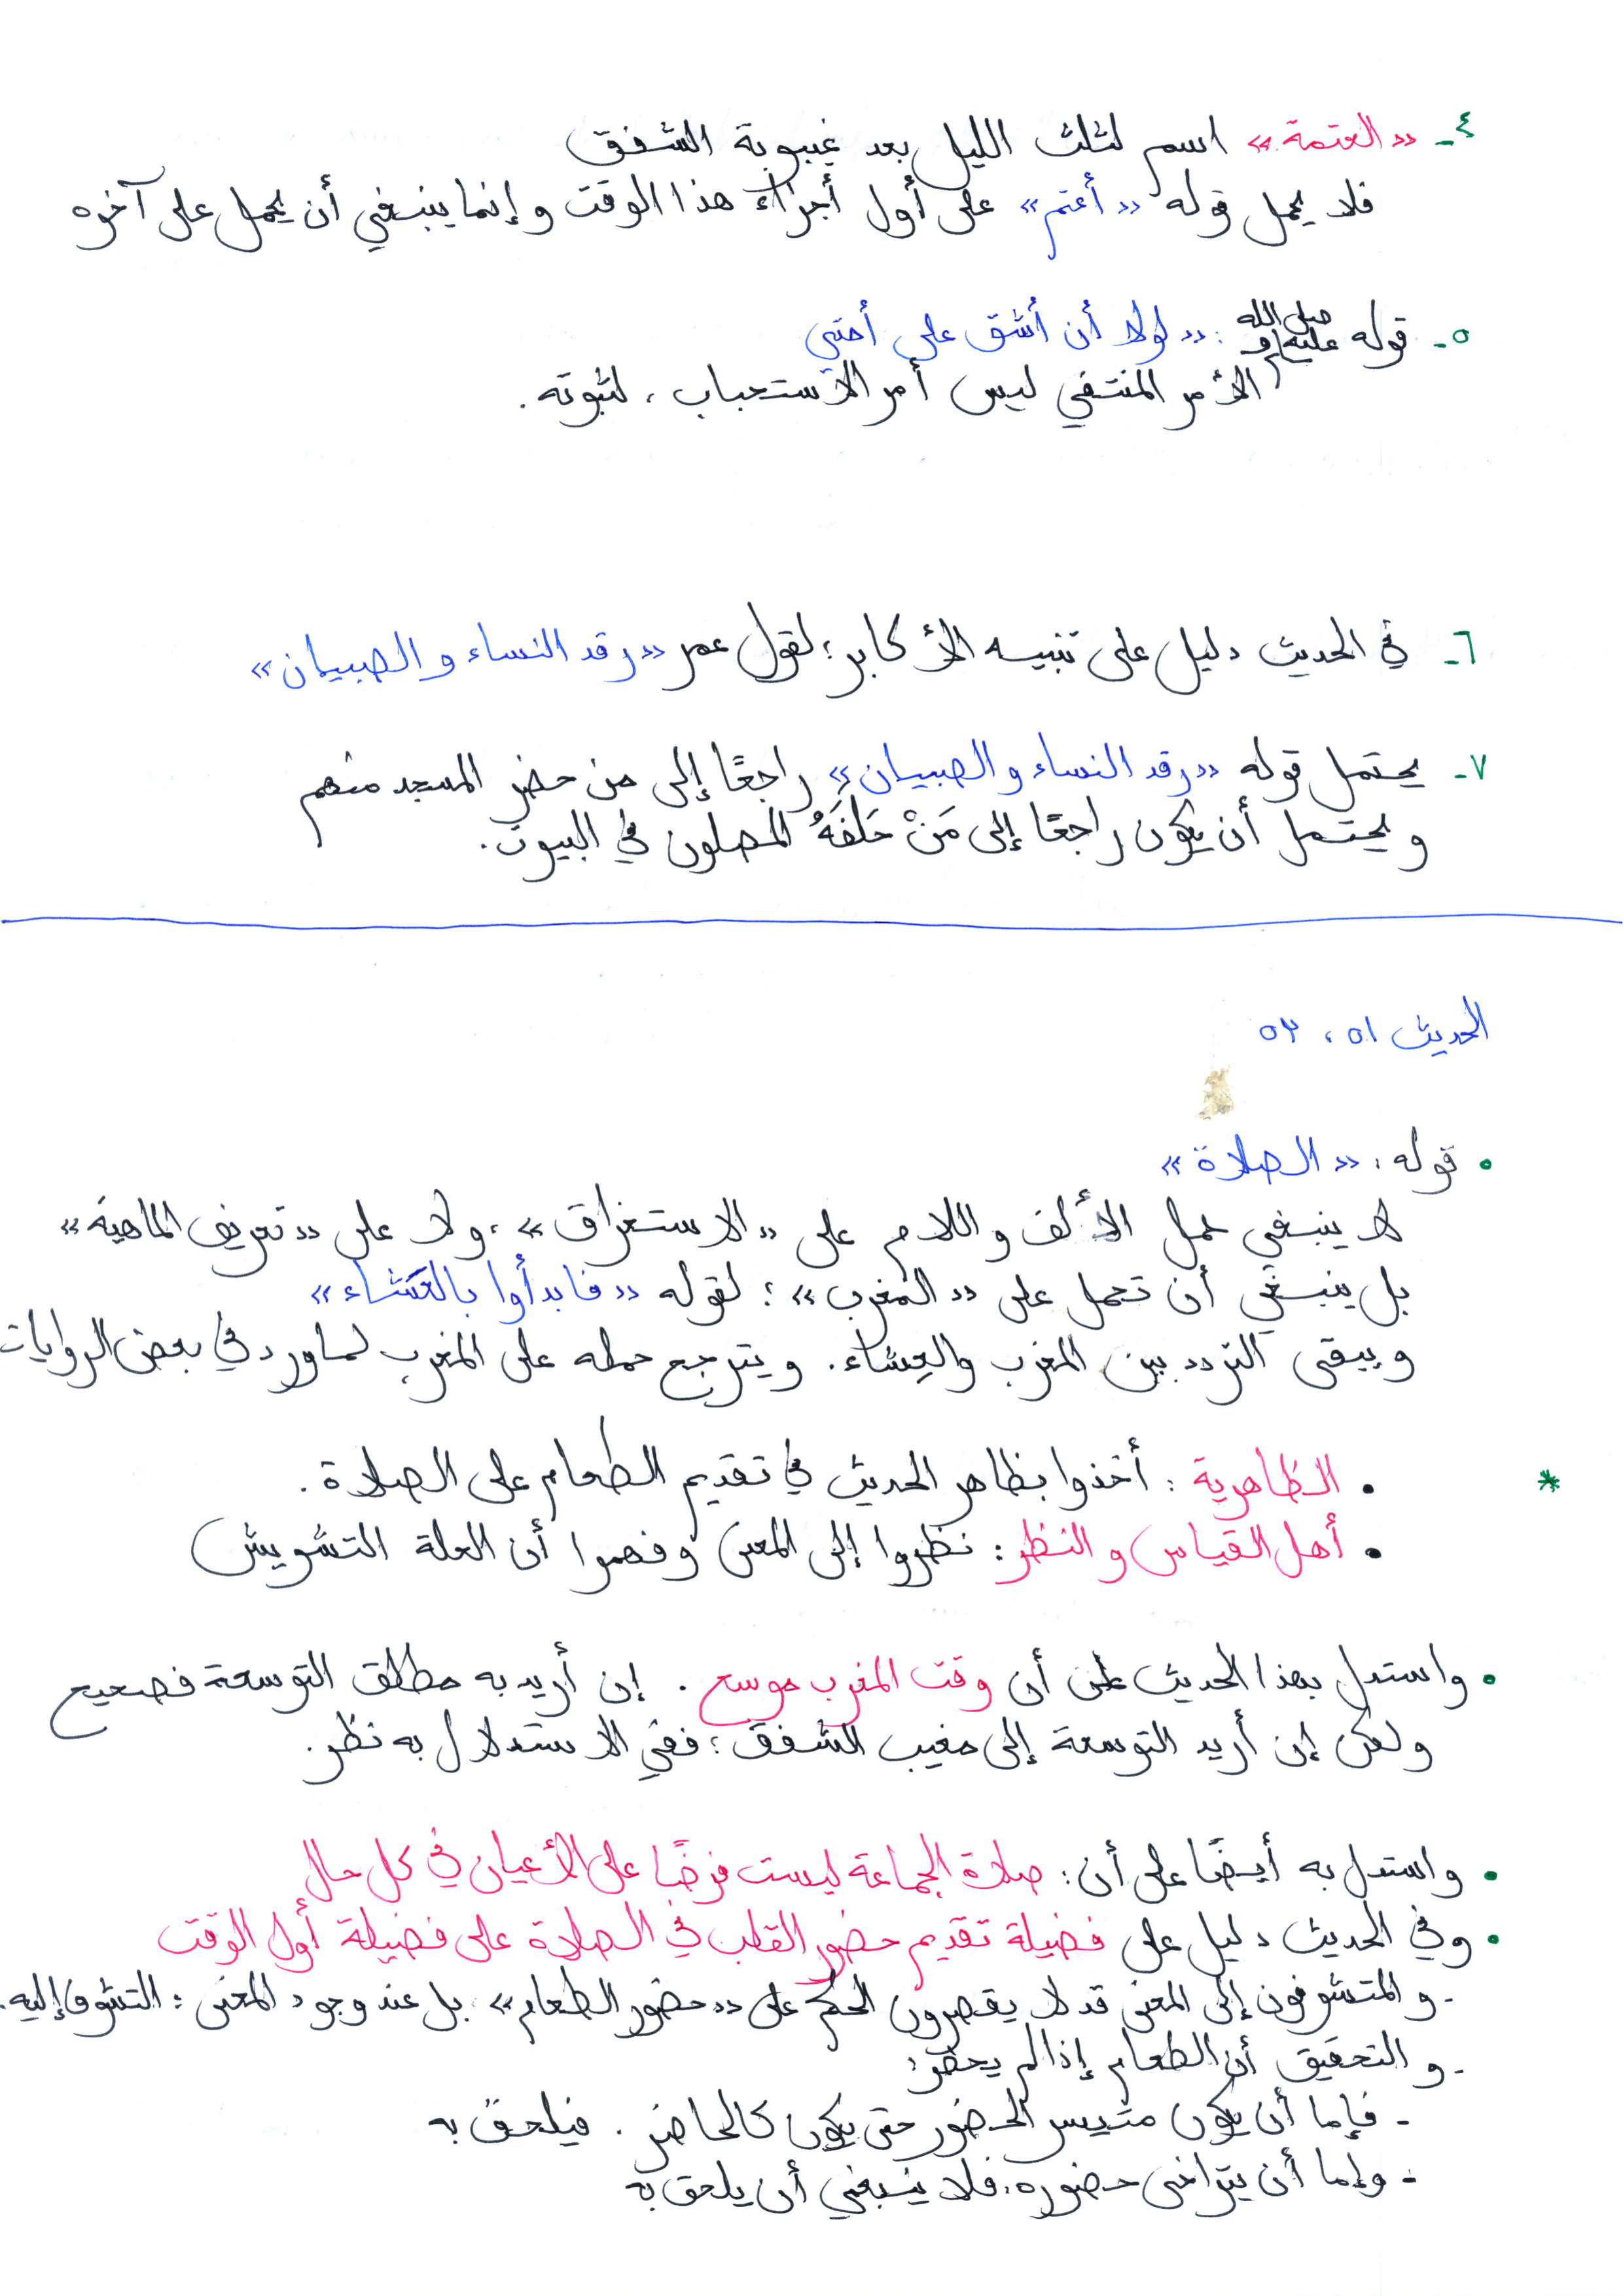 ٤- «العتمة» اسم لثلث الليل بعد غيبوبة الشفق
فلا يحمل قوله «أعتم» على أول أجزاء هذا الوقت وإنما ينبغي أن يحمل على آخره
٥- قوله صلى الله عليه وسلم: «لولا أن أشق على أمتي
الأمر المنتفي ليس أمر الاستحباب، لثبوته.
٦- في الحديث دليل على تنبيه الأكابر؛ لقول عمر «رقد النساء والصبيان»
٧- يحتمل قوله «رقد النساء والصبيان» راجعًا إلى من حضر المسجد منهم
ويحتمل أن يكون راجعًا إلى مَنْ خَلفَهُ المصلون في البيوت.
الحديث ٥١، ٥٢
• قوله: «الصلاة»
لا ينبغي حمل الألف واللام على «الاستغراق»، ولا على «تعريف الماهية»
بل ينبغي أن تحمل على «المغرب»؛ لقوله «فابدأوا بالعَشاء»
ويبقى التردد بين المغرب والعِشاء. ويترجح حمله على المغرب لما ورد في بعض الروايات
* • الظاهرية: أخذوا بظاهر الحديث في تقديم الطعام على الصلاة.
• أهل القياس والنظر: نظروا إلى المعنى وفهموا أن العلة التشويش
• واستدل بهذا الحديث على أن وقت المغرب موسع. إن أريد به مطلق التوسعة فصحيح
ولكن إن أريد التوسعة إلى مغيب الشفق؛ ففي الاستدلال به نظر.
• واستدل به أيضًا على أن: صلاة الجماعة ليست فرضًا على الأعيان في كل حال
• وفي الحديث دليل على فضيلة تقديم حضور القلب في الصلاة على فضيلة أول الوقت
- والمتشوفون إلى المعنى قد لا يقصرون الحكم على «حضور الطعام» بل عند وجود المعنى: التشوف إليه.
- والتحقيق أن الطعام إذا لم يحضر:
- فإما أن يكون متيسر الحضور حتى يكون كالحاضر. فيلحق به
- وإما أن يتراخى حضوره، فلا ينبغي أن يلحق به